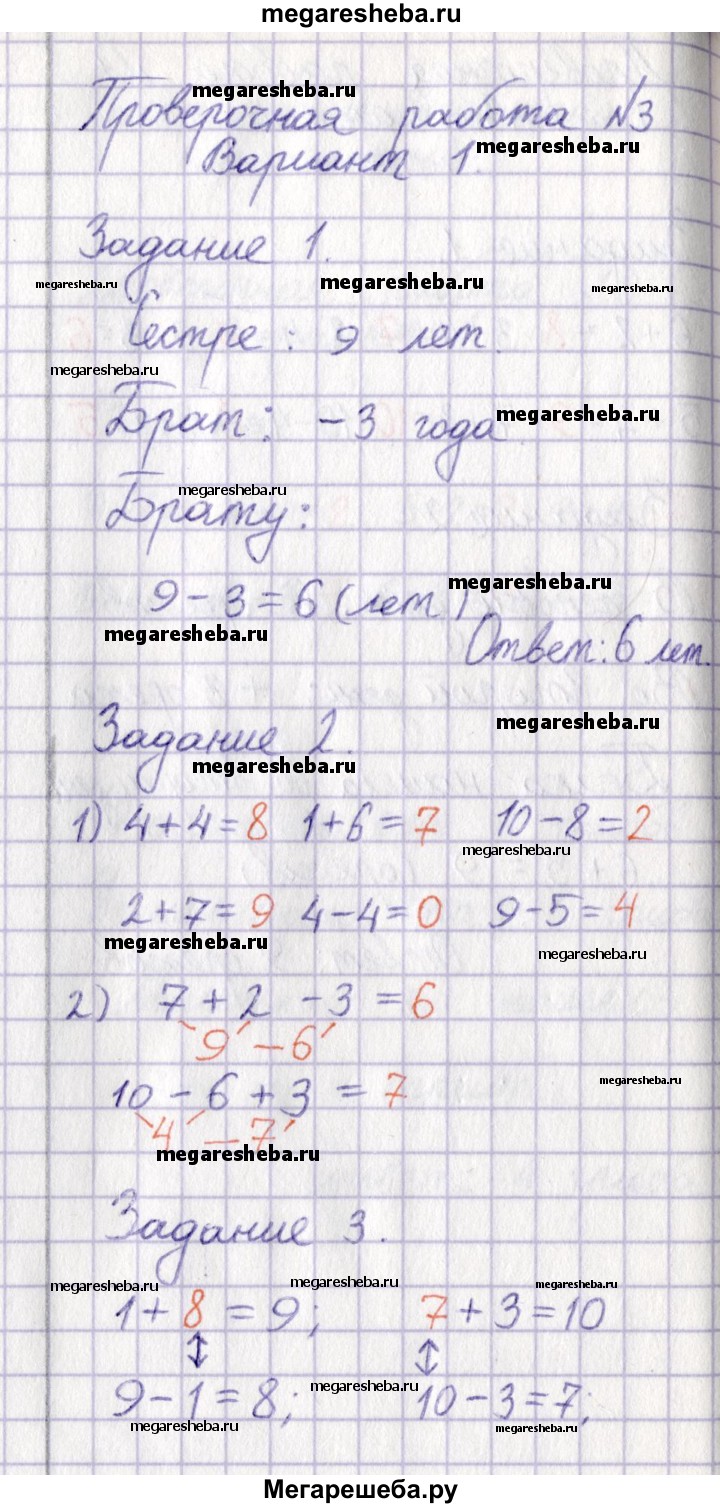 megaresheba.ru
megaresheba.ru
Проверочная работа №3
megaresheba.ru
Вариант 1.
Задание 1.
megaresheba.ru megaresheba.ru megaresheba.ru
Сестре: 9 лет.
megaresheba.ru
Брат: - 3 года
megaresheba.ru
megaresheba.ru
Брату:
megaresheba.ru
9 - 3 = 6 (лет)
megaresheba.ru
Ответ: 6 лет.
megaresheba.ru
Задание 2.
megaresheba.ru
1) 4 + 4 = 8 1 + 6 = 7 10 - 8 = 2
megaresheba.ru
2 + 7 = 9 4 - 4 = 0 9 - 5 = 4
megaresheba.ru megaresheba.ru
2) 7 + 2 - 3 = 6
9 — 6
megaresheba.ru
10 - 6 + 3 = 7
4 — 7
megaresheba.ru
Задание 3.
megaresheba.ru megaresheba.ru megaresheba.ru
1 + 8 = 9; 7 + 3 = 10
↕ ↕
megaresheba.ru
9 - 1 = 8; 10 - 3 = 7;
megaresheba.ru megaresheba.ru
Мегарешеба.ру